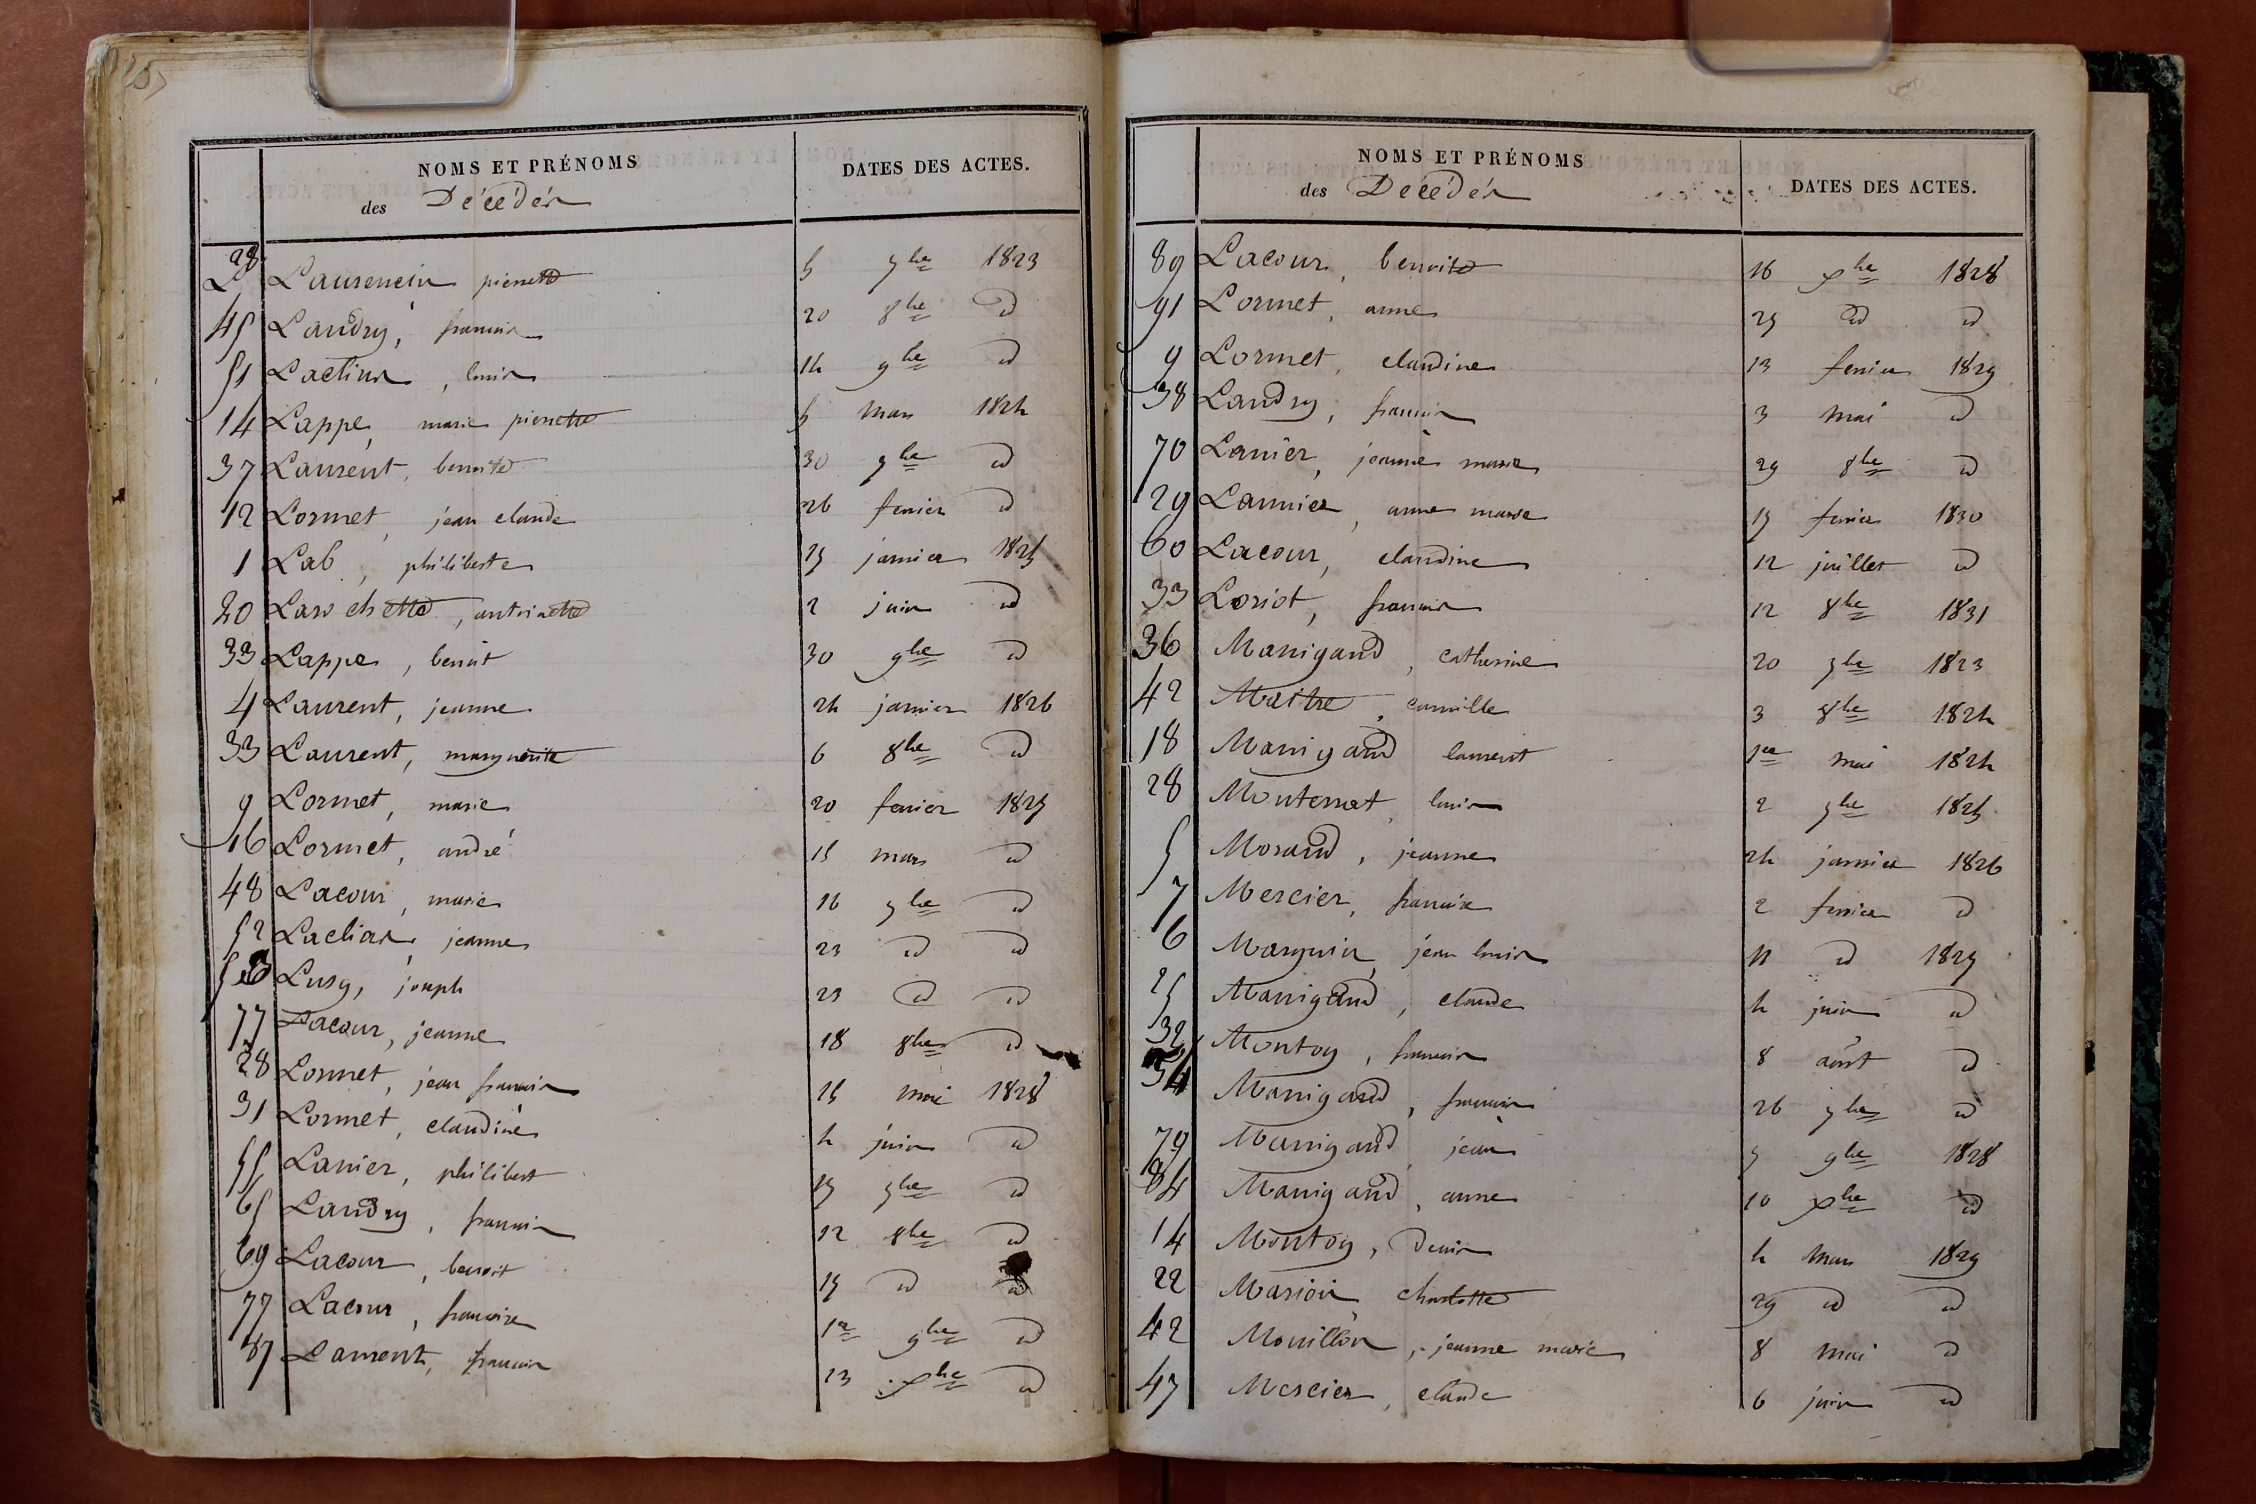 NOMS ET PRÉNOMS
des Décédés
DATES DES ACTES.
28 Laurencin pierrette 5 7bre 1823
45 Landry, françois 20 8bre id
51 Laclius, louis 14 9bre id
14 Lappe, marie pierrette 5 mars 1824
37 Laurent, benoite 30 7bre id
12 Lormet, jean claude 26 fevrier id
1 Lab, philiberte 17 janvier 1825
20 Larochette, antoinette 2 juin id
33 Lappe, benoit 30 9bre id
4 Laurent, jeanne 24 janvier 1826
33 Laurent, marguerite 6 8bre id
9 Lormet, marie 20 fevrier 1827
16 Lormet, andré 15 mars id
48 Lacour, marie 16 7bre id
52 Lacliar, jeanne 23 id id
53 Lusy, joseph 25 id id
77 Lacour, jeanne 18 8bre id
28 Lormet, jean françois 15 mai 1828
31 Lormet, claudine 4 juin id
55 Lanier, philibert 17 7bre id
65 Landry, françois 12 8bre id
69 Lacour, benoit 17 id id
77 Lacour, françoise 1er 9bre id
87 Laurent, françois 13 xbre id
NOMS ET PRÉNOMS
des Décédés
DATES DES ACTES.
89 Lacour, benoite 16 xbre 1828
91 Lormet, anne 27 id id
9 Lormet, claudine 13 fevrier 1829
38 Landry, françois 3 mai id
70 Lanier, jeanne marie 29 8bre id
29 Lannier, anne marie 17 fevrier 1830
60 Lacour, claudine 12 juillet id
33 Loriot, françois 12 8bre 1831
36 Manigand, catherine 20 7bre 1823
42 Maitre, camille 3 8bre 1824
18 Manigand laurent 1er mai 1824
28 Monternat, louis 2 7bre 1825
5 Morand, jeanne 24 janvier 1826
7 Mercier, françoise 2 fevrier id
6 Marguin, jean louis 11 id 1827
25 Manigand, claude 4 juin id
32 Montoy, françois 8 août id
54 Manigand, françois 26 7bre id
79 Manigand, jean 7 9bre 1828
84 Manigand, anne 10 xbre id
14 Montoy, Denis 4 mars 1829
22 Marion, charlotte 29 id id
42 Mouillon, jeanne marie 8 mai id
47 Mercier, claude 6 juin id